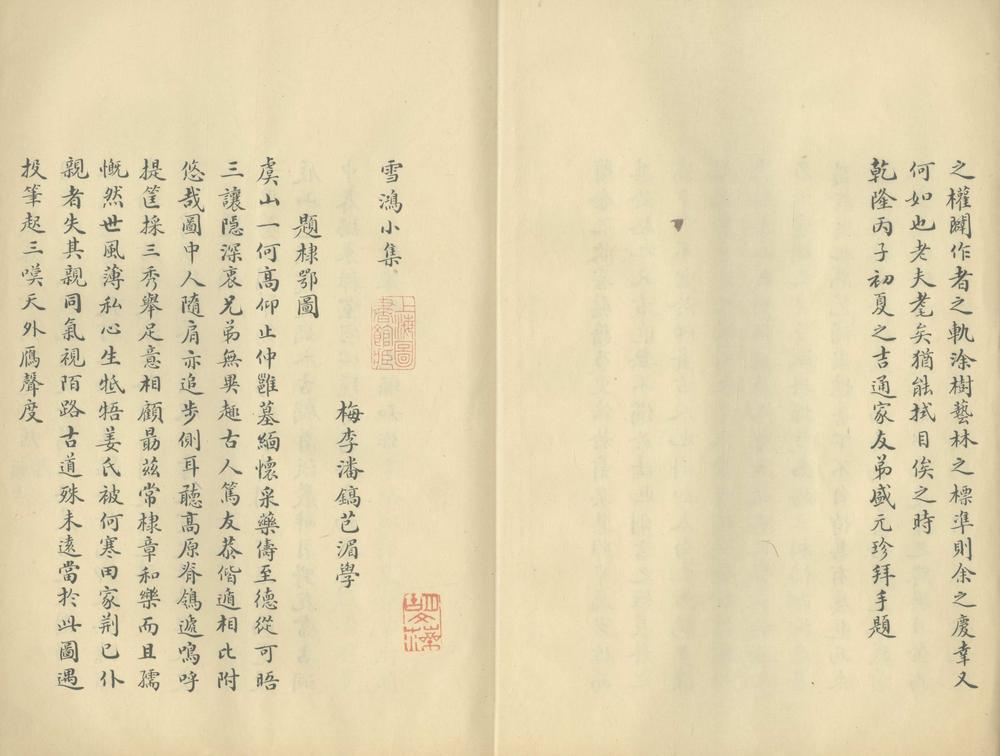 之權闢作者之軌涂樹藝林之標準則余之慶幸又
何如也老夫耄矣猶能拭目俟之時
乾隆丙子初夏之吉通家友弟盛元珍拜手題
雪鴻小集
上海圖書館藏
梅李潘鎬芑湄學
題棣鄂圖
虞山一何高仰止仲雝墓緬懷采藥儔至德從可晤
三讓隱深衷兄弟無異趣古人篤友恭偕適相比附
悠哉圖中人隨肩亦追步側耳聽高原脊鴒遞鳴呼
提筐採三秀舉足意相顧勗茲常棣章和樂而且孺
慨然世風薄私心生牴牾姜氏被何寒田家荆已仆
親者失其親同氣視陌路古道殊未遠當於此圖遇
投筆起三嘆天外鴈聲度